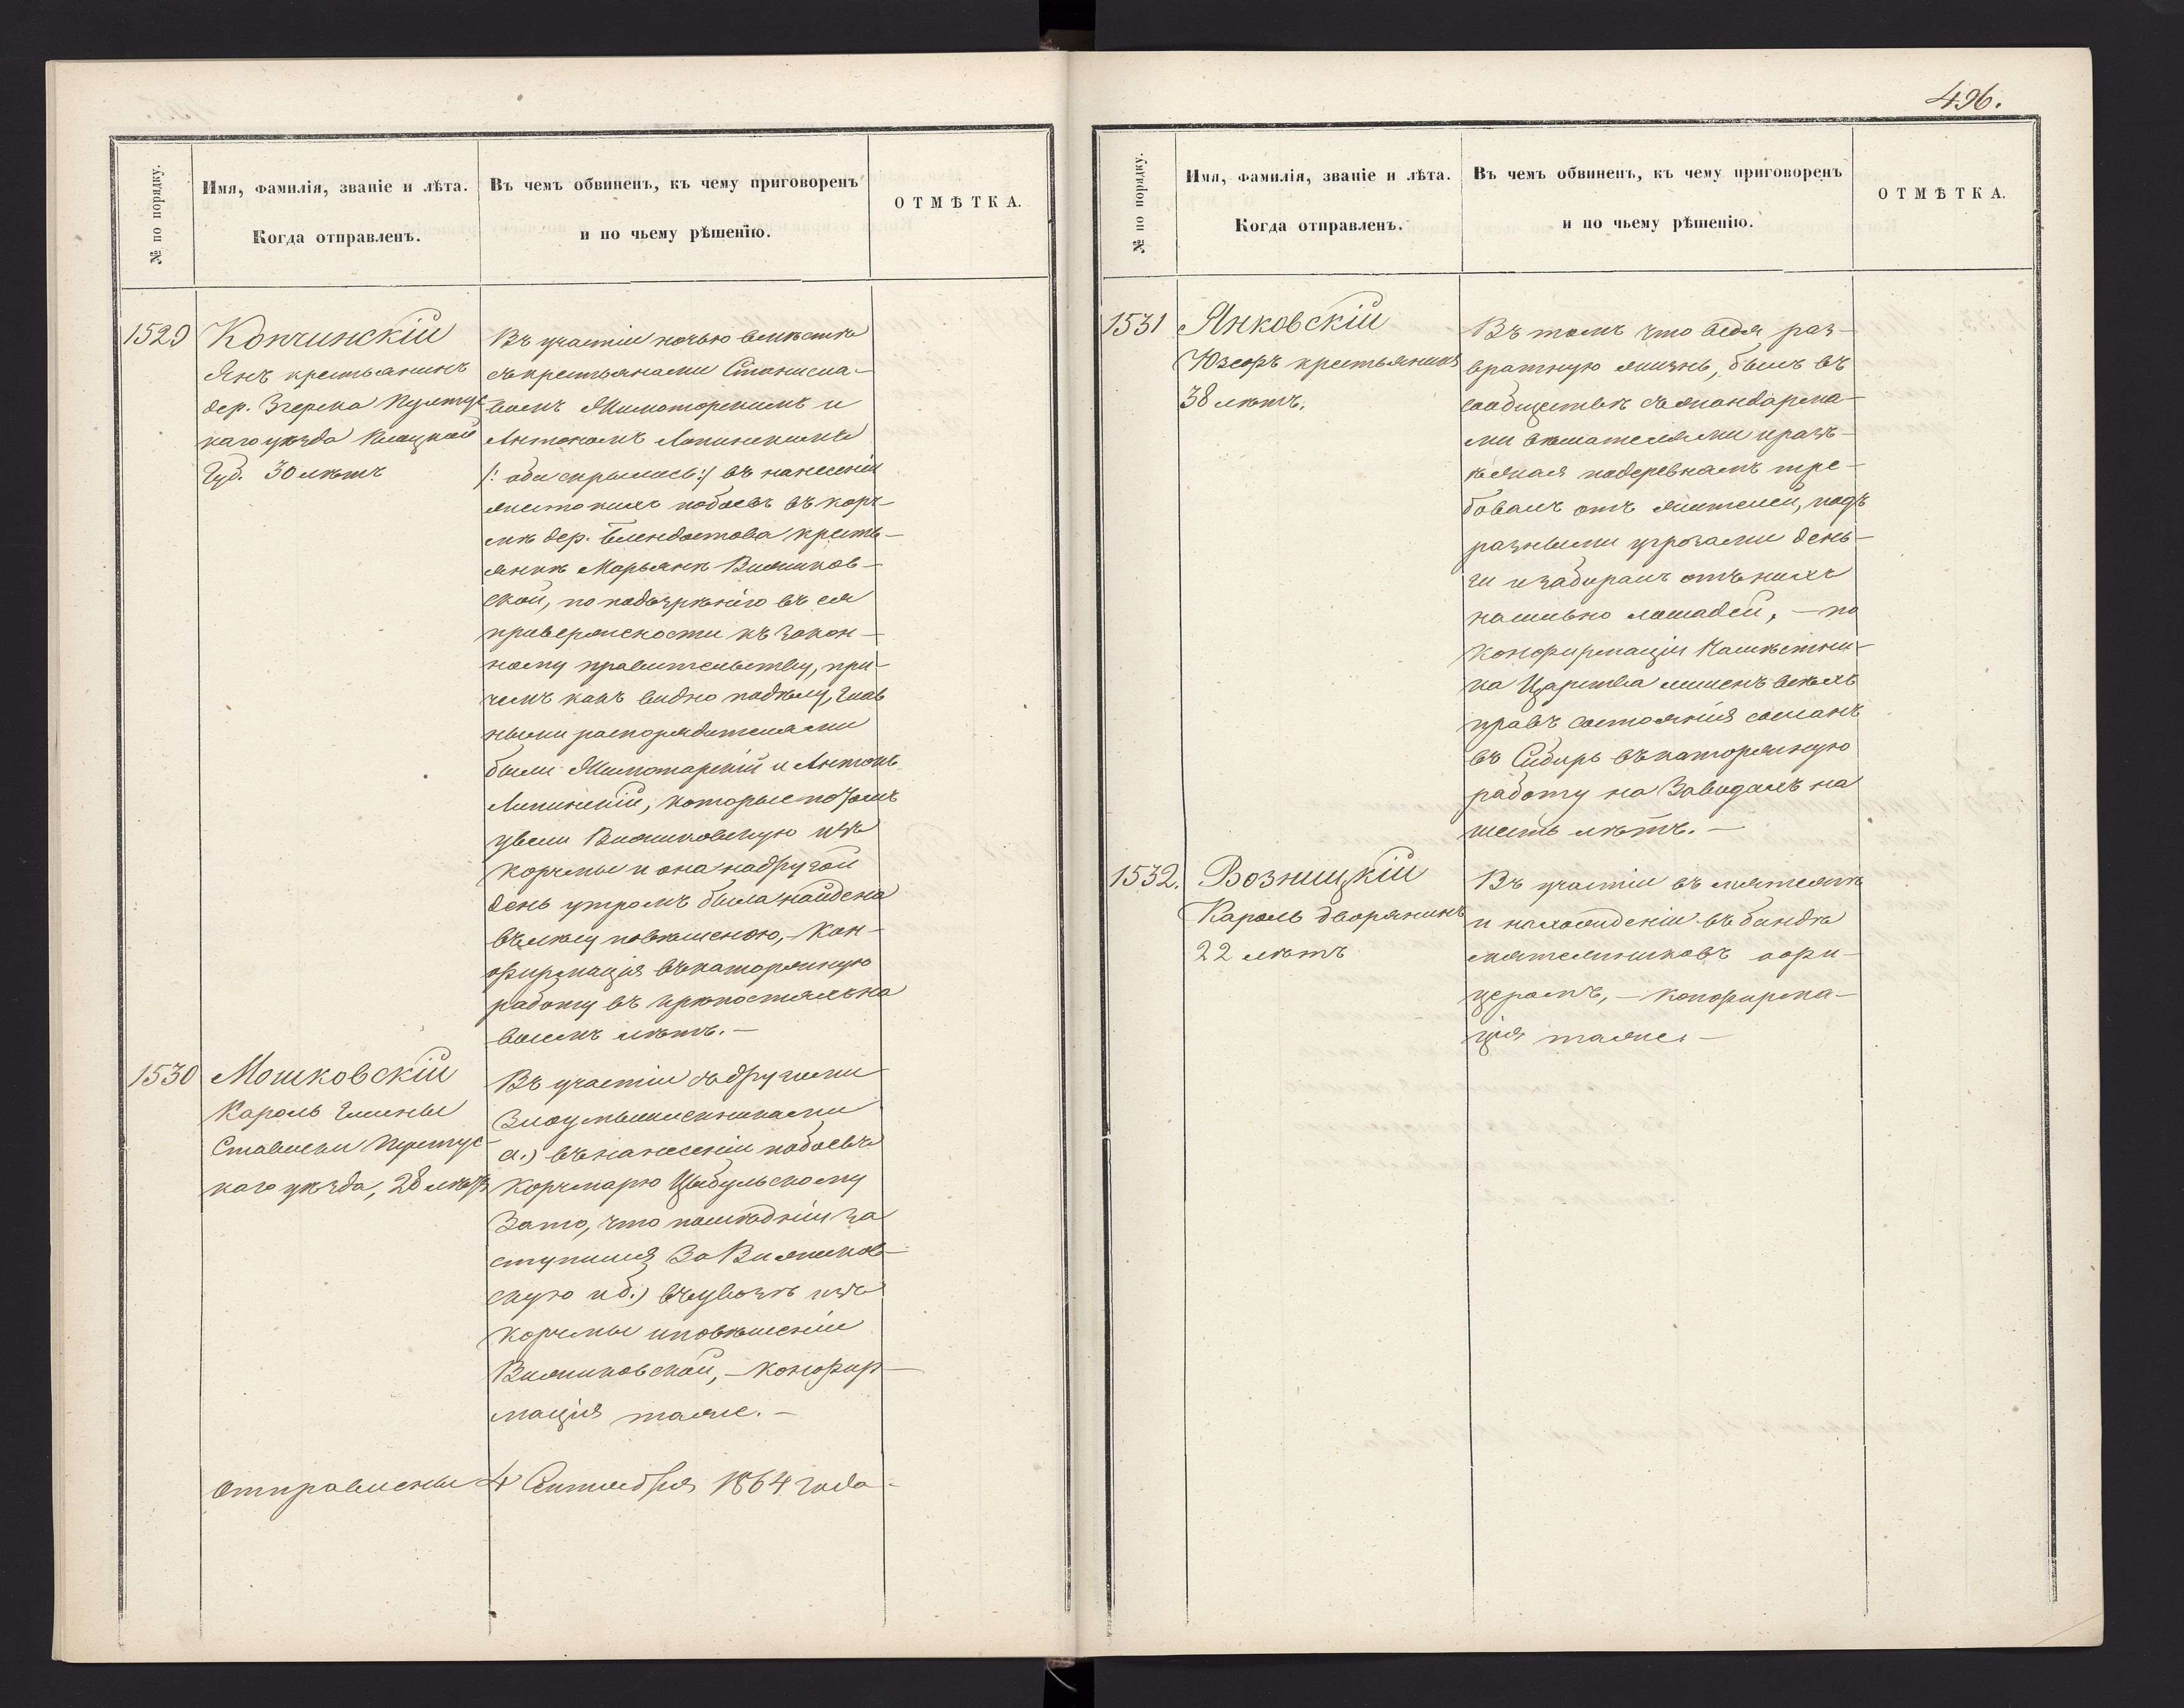 496.
№ по порядку.
Имя, фамилія, званіе и лѣта.
Когда отправленъ.
Въ чемъ обвиненъ, къ чему приговоренъ
и по чьему рѣшенію.
ОТМѢТКА.
1529
Кончинскій
Янъ крестьянинъ
дер. Згерека Пултус
каго уѣзда Плоцкой
Губ. 30 лѣтъ
Въ участіи ночью вмѣстѣ
съ крестьянами Станисла-
вомъ Жилоторскимъ и
Антономъ Липинскимъ
/: оба скрылись :/ въ нанесеніи
жестокихъ побоевъ въ корч-
мѣ дер. Блендостова кресть-
янкѣ Марьянѣ Вишников-
ской, по подозрѣнію въ ея
приверженности къ закон-
ному правительству, при-
чемъ какъ видно по дѣлу, глав
ными распорядителями
были Жилотарскій и Антонъ
Липинскій, которые потомъ
увели Вишниковскую изъ
корчмы и она на другой
день утромъ была найдена
въ лѣсу повѣшеною, - Кон-
фирмація въ каторжную
работу въ крѣпостяхъ на
восемь лѣтъ. -
1530
Мошковскій
Кароль Гмины
Стависки Пултус-
каго уѣзда, 28 лѣтъ
Въ участіи съ другими
Злоумышленниками
а.) въ нанесеніи побоевъ
Корчмарю Цыбульскому
За то, что послѣдній за
ступился За Вишников-
скую и б.) въ увозѣ изъ
Корчмы и повѣшеніи
Вишниковской, - Конфир-
мація таже. -
Отправлены 4 Сентября 1864 года.
№ по порядку.
Имя, фамилія, званіе и лѣта.
Когда отправленъ.
Въ чемъ обвиненъ, къ чему приговоренъ
и по чьему рѣшенію.
ОТМѢТКА.
1531
Янковскій
Юзефъ крестьянинъ
38 лѣтъ.
Въ томъ что ведя раз-
вратную жизнь, былъ въ
сообществѣ съ жандарма-
ми вѣшателями и разъ-
ѣзжая по деревнямъ тре-
бовалъ отъ жителей, подъ
разными угрозами день-
ги и забиралъ отъ нихъ
насильно лошадей, - по
Конфирмаціи Намѣстни-
ка Царства лишенъ всѣхъ
правъ состоянія сосланъ
въ Сибирь въ каторжную
работу на Заводахъ на
шесть лѣтъ. -
1532.
Возницкій
Кароль дворянинъ
22 лѣтъ
Въ участіи въ мятежѣ
и нахожденіи въ бандѣ
мятежниковъ офи-
церомъ, - Конфирма-
ція таже. -